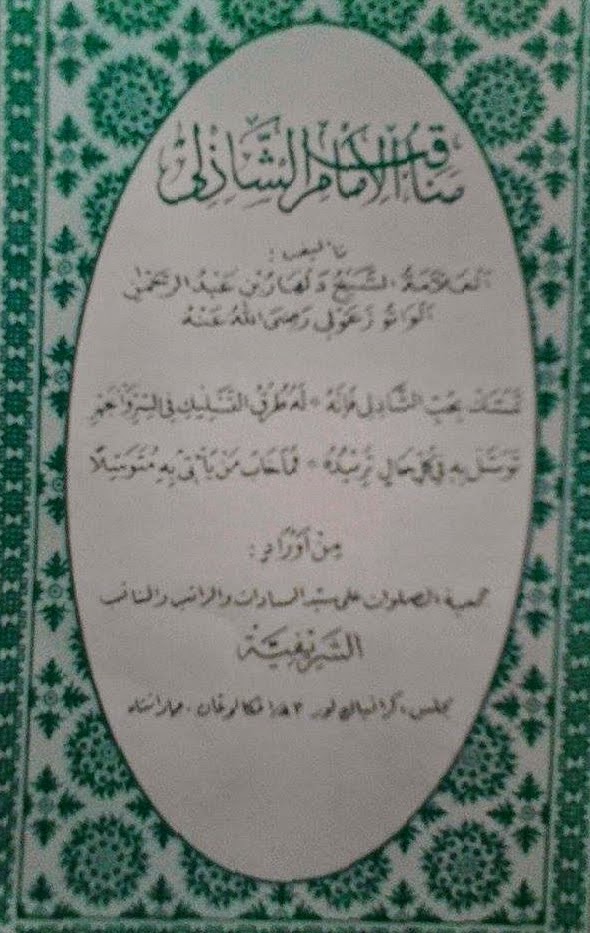 مناقب الإمام الشاذلي
تأليف :
العلامة الشيخ دلهار بن عبد الرحمن
الواتو زعولي رضى الله عنه
تمسك بحب الشاذلي فإنه * له طرق التسليك في السر والجهر
توسل به في كل حال تريده * فما خاب من يأتي به متوسلا
من أوراد :
جمعية الصلوات على سيد السادات والراتب والمناقب
الشريفية
مجلس